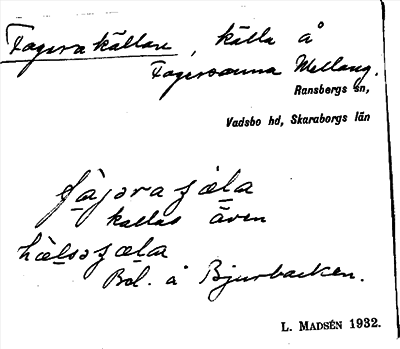 Fagerakällan, källa å
Fagersanna Mellang.
Ransbergs sn,
Vadsbo hd, Skaraborgs län
fàjəra ʃæla
kallas även
hæ̀lsəʃæla
Bol. å Bjurbacken.
L. MADSÉN 1932.